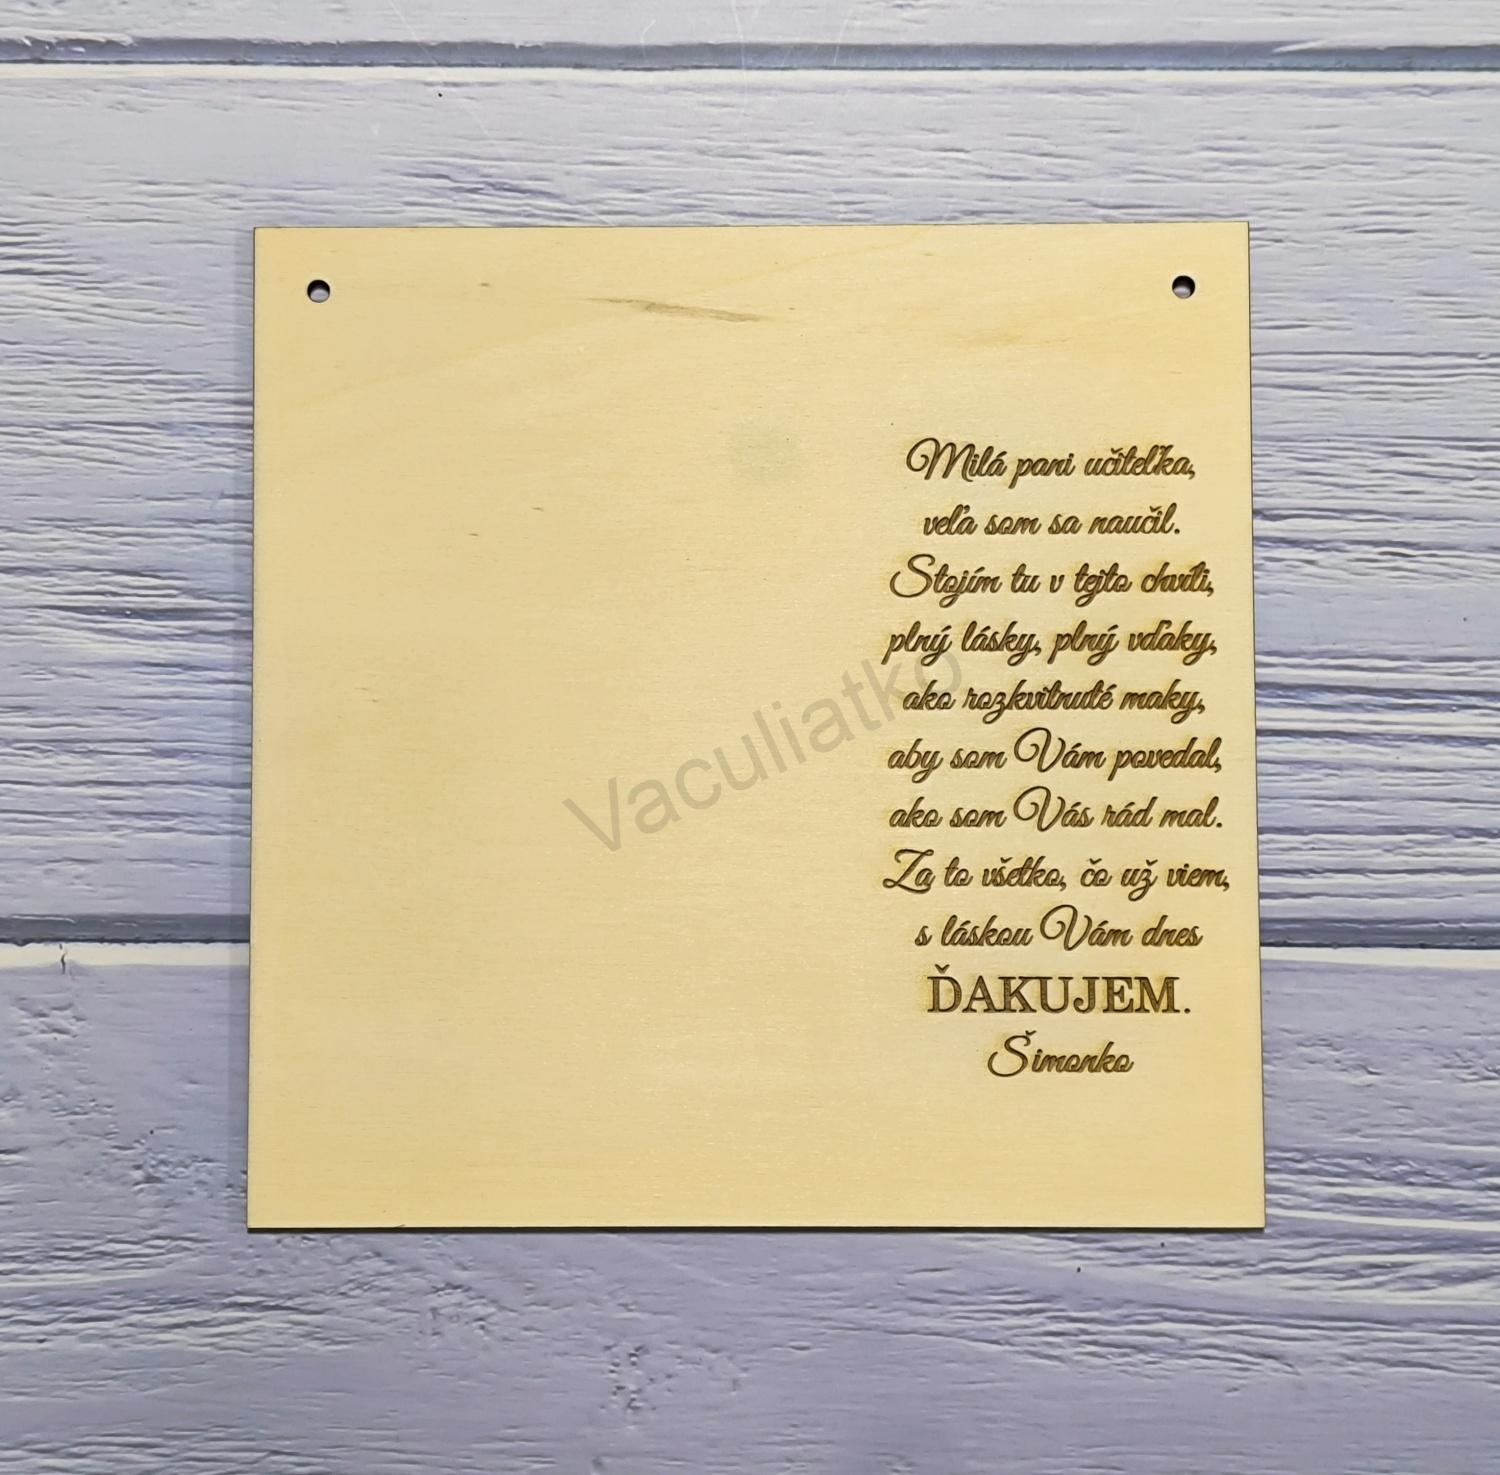 Milá pani učiteľka,
veľa som sa naučil.
Stojím tu v tejto chvíli,
plný lásky, plný vďaky,
ako rozkvitnuté maky,
aby som Vám povedal,
ako som Vás rád mal.
Za to všetko, čo už viem,
s láskou Vám dnes
ĎAKUJEM.
Šimonko
Vaculiatko